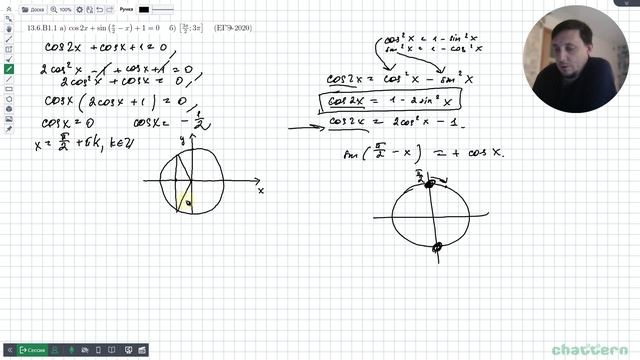 Доски
100%
Ручка
13.6.B1.1 а) cos 2x + sin (π/2 − x) + 1 = 0   б) [3π/2; 3π]   (ЕГЭ-2020)
cos2x + cosx + 1 = 0,
2cos²x − 1 + cosx + 1 = 0
2cos²x + cosx = 0,
cosx (2cosx + 1) = 0,
cosx = 0   cosx = −1/2
x = π/2 + πk, k∈Z
y
x
cos²x = 1 − sin²x
sin²x = 1 − cos²x
cos2x = cos²x − sin²x
cos2x = 1 − 2sin²x
cos2x = 2cos²x − 1.
sin(π/2 − x) = + cosx.
π/2
Сессия
chattern